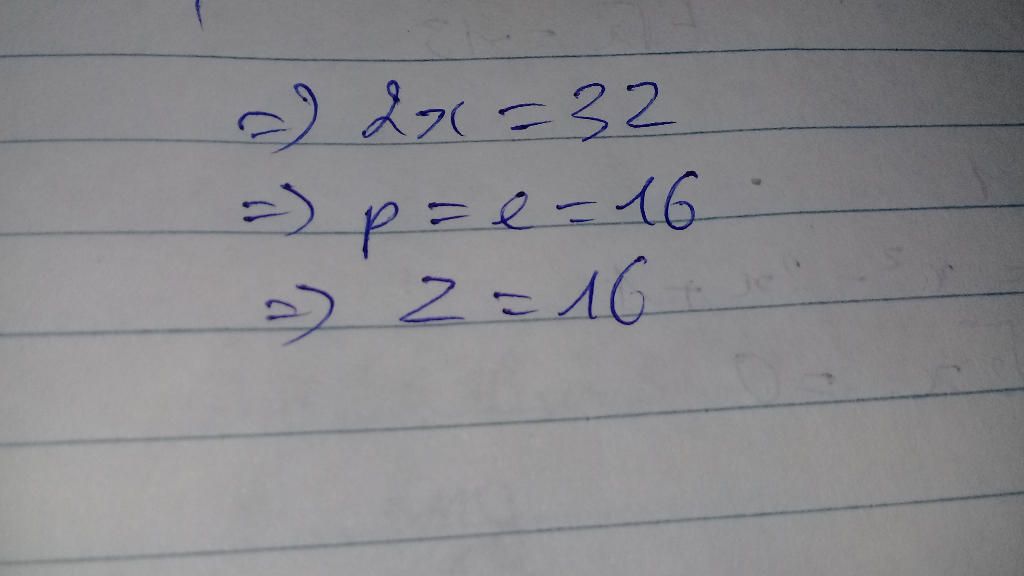 => 2x = 32
=> p = e = 16
=> Z = 16